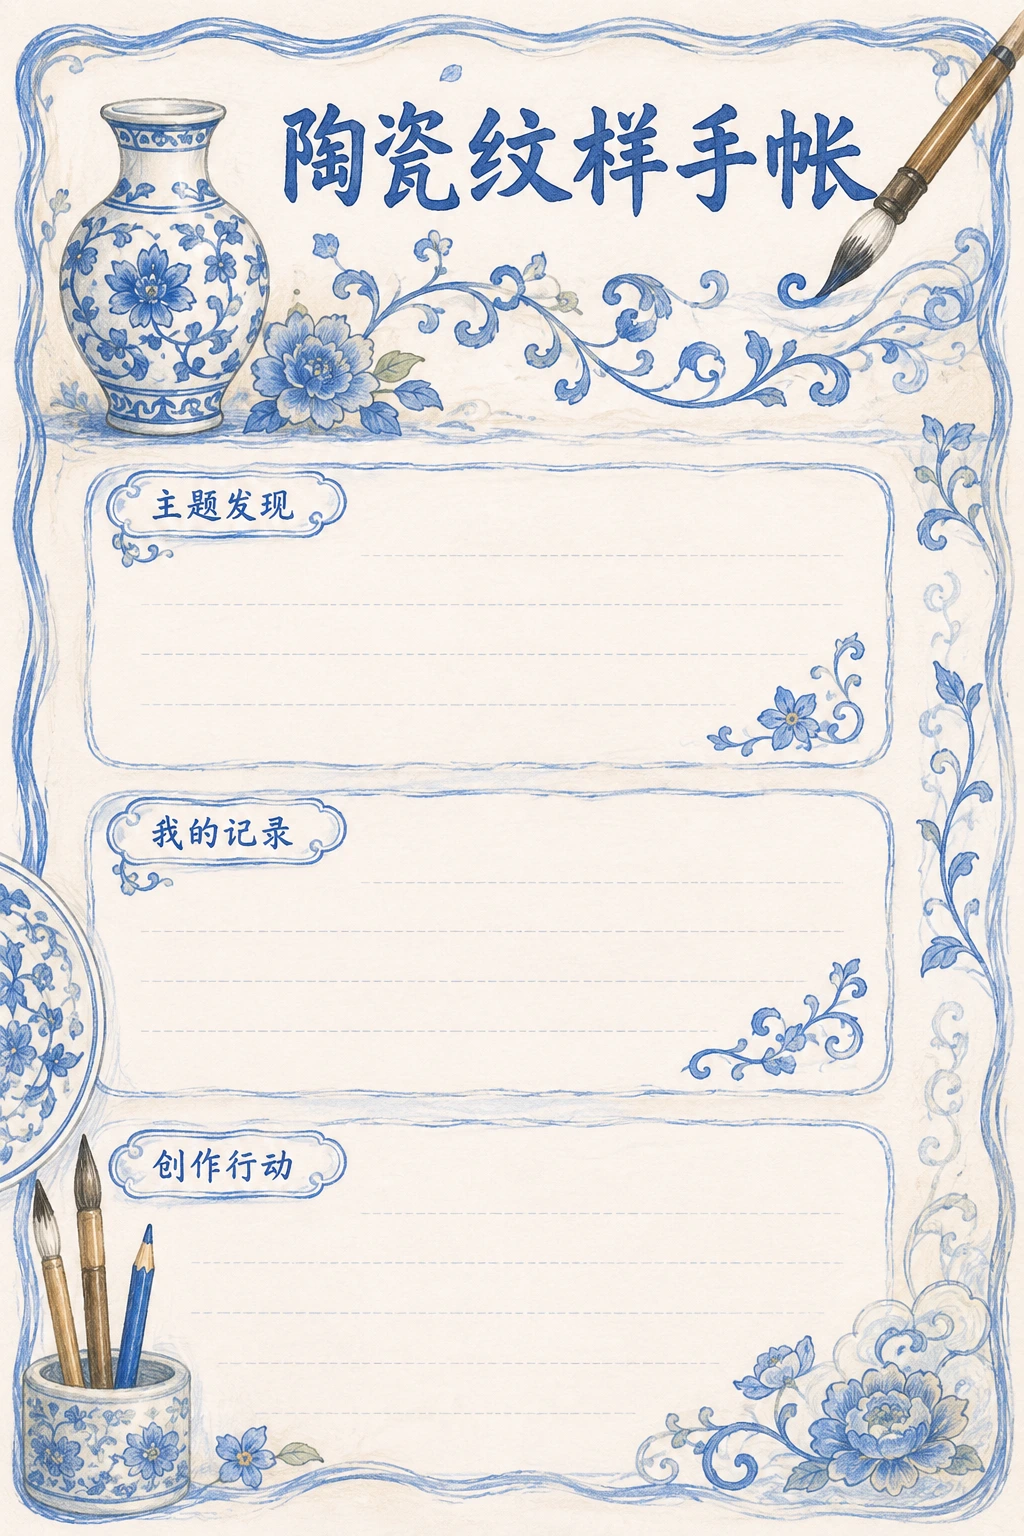 陶瓷纹样手帐
主题发现
我的记录
创作行动